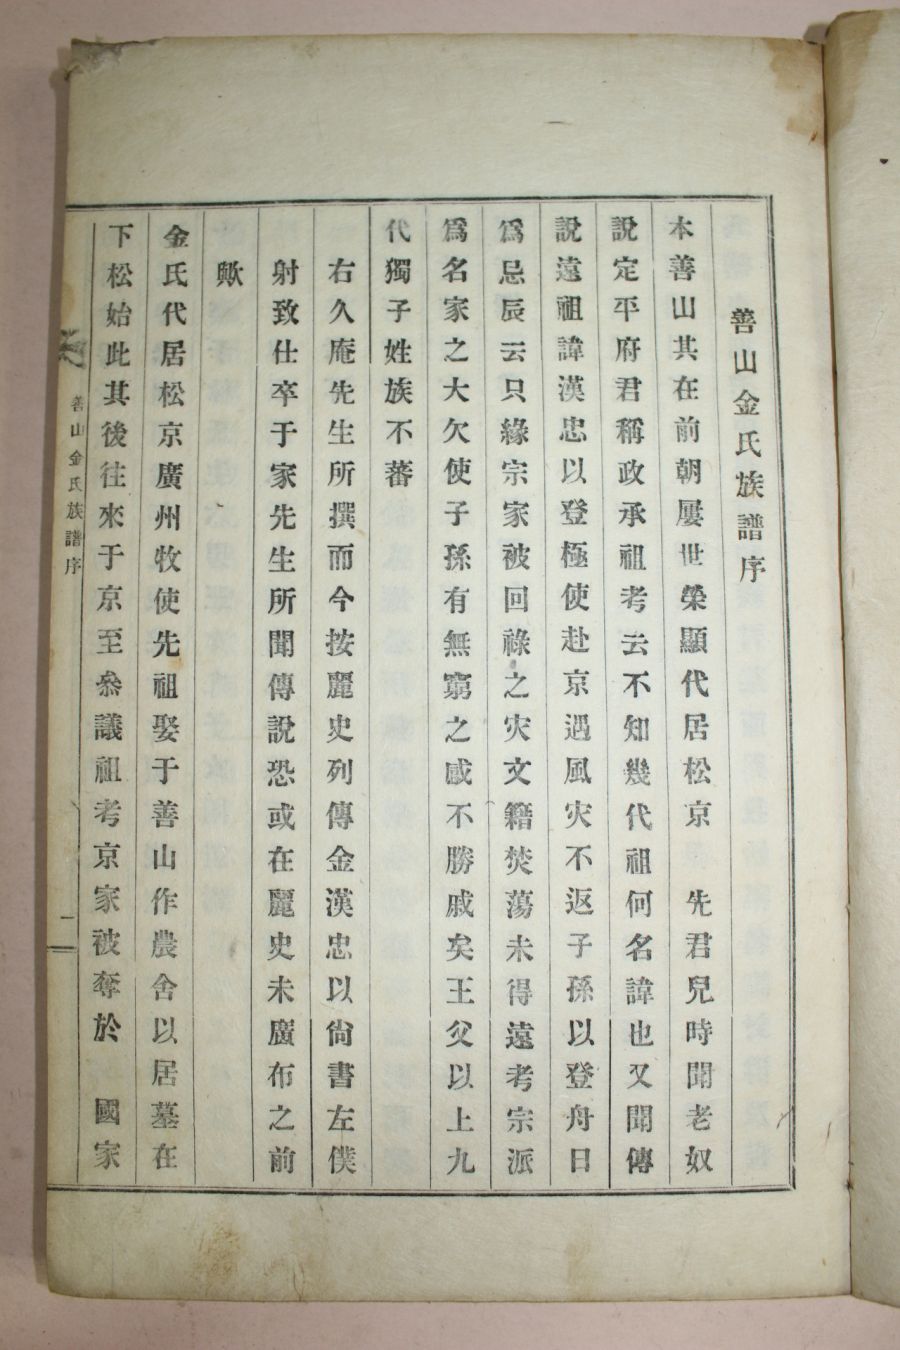 善山金氏族譜序
本善山其在前朝屢世榮顯代居松京　先君兒時聞老奴
說定平府君稱政承祖考云不知幾代祖何名諱也又聞傳
說遠祖諱漢忠以登極使赴京遇風灾不返子孫以登舟日
爲忌辰云只緣宗家被回祿之灾文籍焚蕩未得遠考宗派
爲名家之大欠使子孫有無窮之慽不勝戚矣王父以上九
代獨子姓族不蕃
右久庵先生所撰而今按麗史列傳金漢忠以尙書左僕
射致仕卒于家先生所聞傳說恐或在麗史未廣布之前
歟
金氏代居松京廣州牧使先祖娶于善山作農舍以居墓在
下松始此其後往來于京至叅議祖考京家被奪於　國家
善山金氏族譜序
一